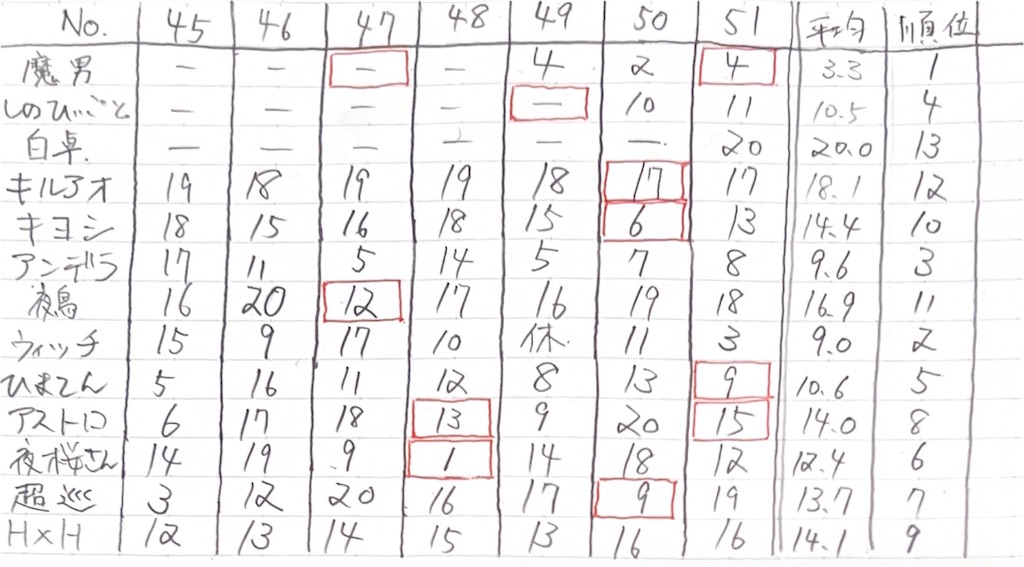 No. 45 46 47 48 49 50 51 平均 順位
魔男 — — — — 4 2 4 3.3 1
しのびごと — — — — — 10 11 10.5 4
白卓 — — — — — — 20 20.0 13
キルアオ 19 18 19 19 18 17 17 18.1 12
キヨシ 18 15 16 18 15 6 13 14.4 10
アンデラ 17 11 5 14 5 7 8 9.6 3
夜島 16 20 12 17 16 19 18 16.9 11
ウィッチ 15 9 17 10 休 11 3 9.0 2
ひまてん 5 16 11 12 8 13 9 10.6 5
アストロ 6 17 18 13 9 20 15 14.0 8
夜桜さん 14 19 9 1 14 18 12 12.4 6
超巡 3 12 20 16 17 9 19 13.7 7
H×H 12 13 14 15 13 16 16 14.1 9